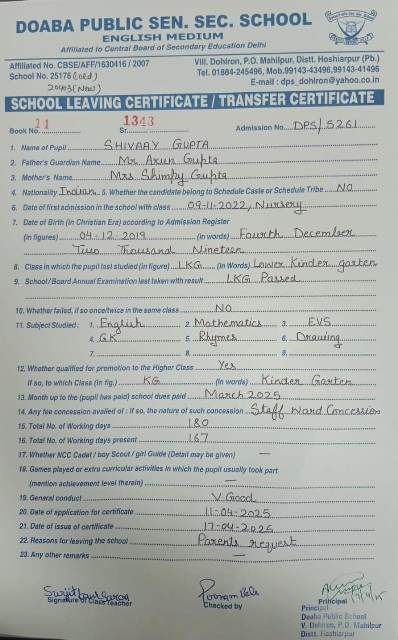 DOABA PUBLIC SEN. SEC. SCHOOL
ENGLISH MEDIUM
Affiliated to Central Board of Secondary Education Delhi
Affiliated No. CBSE/AFF/1630416 / 2007
School No. 25176 (old)
20403 (New)
Vill. Dohlron, P.O. Mahilpur, Distt. Hoshiarpur (Pb.)
Tel. 01884-245496, Mob.99143-43496,99143-41496
E-mail : dps_dohlron@yahoo.co.in
SCHOOL LEAVING CERTIFICATE / TRANSFER CERTIFICATE
Book No. 11 Sr. 1343 Admission No. DPS/5261
1. Name of Pupil SHIVAAY GUPTA
2. Father's Guardian Name Mr Arun Gupta
3. Mother's Name Mrs Shimpy Gupta
4. Nationality Indian 5. Whether the candidate belong to Schedule Caste or Schedule Tribe NO
6. Date of first admission in the school with class 09-11-2022, Nursery
7. Date of Birth (in Christian Era) according to Admission Register
(in figures) 04-12-2019 (in words) Fourth December
Two Thousand Nineteen
8. Class in which the pupil last studied (in figure) LKG (in Words) Lower Kinder garten
9. School/Board Annual Examination last taken with result LKG Passed
10. Whether failed, if so once/twice in the same class NO
11. Subject Studied : 1. English 2. Mathematics 3. EVS
4. GK 5. Rhymes 6. Drawing
7. 8. 9.
12. Whether qualified for promotion to the Higher Class Yes
if so, to which Class (in fig.) KG (in words) Kinder Garten
13. Month up to the (pupil has paid) school dues paid March 2025
14. Any fee concession availed of : if so, the nature of such concession Staff Ward Concession
15. Total No. of Working days 180
16. Total No. of Working days present 167
17. Whether NCC Cadet / boy Scout / girl Guide (Detail may be given) —
18. Games played or extra curricular activities in which the pupil usually took part
(mention achievement level therein) —
19. General conduct V. Good
20. Date of application for certificate 11-04-2025
21. Date of issue of certificate 17-04-2025
22. Reasons for leaving the school Parents request
23. Any other remarks —
Signature of Class Teacher
Checked by
Principal
Principal
Doaba Public School
V. Dohlron, P.O. Mahilpur
Distt. Hoshiarpur